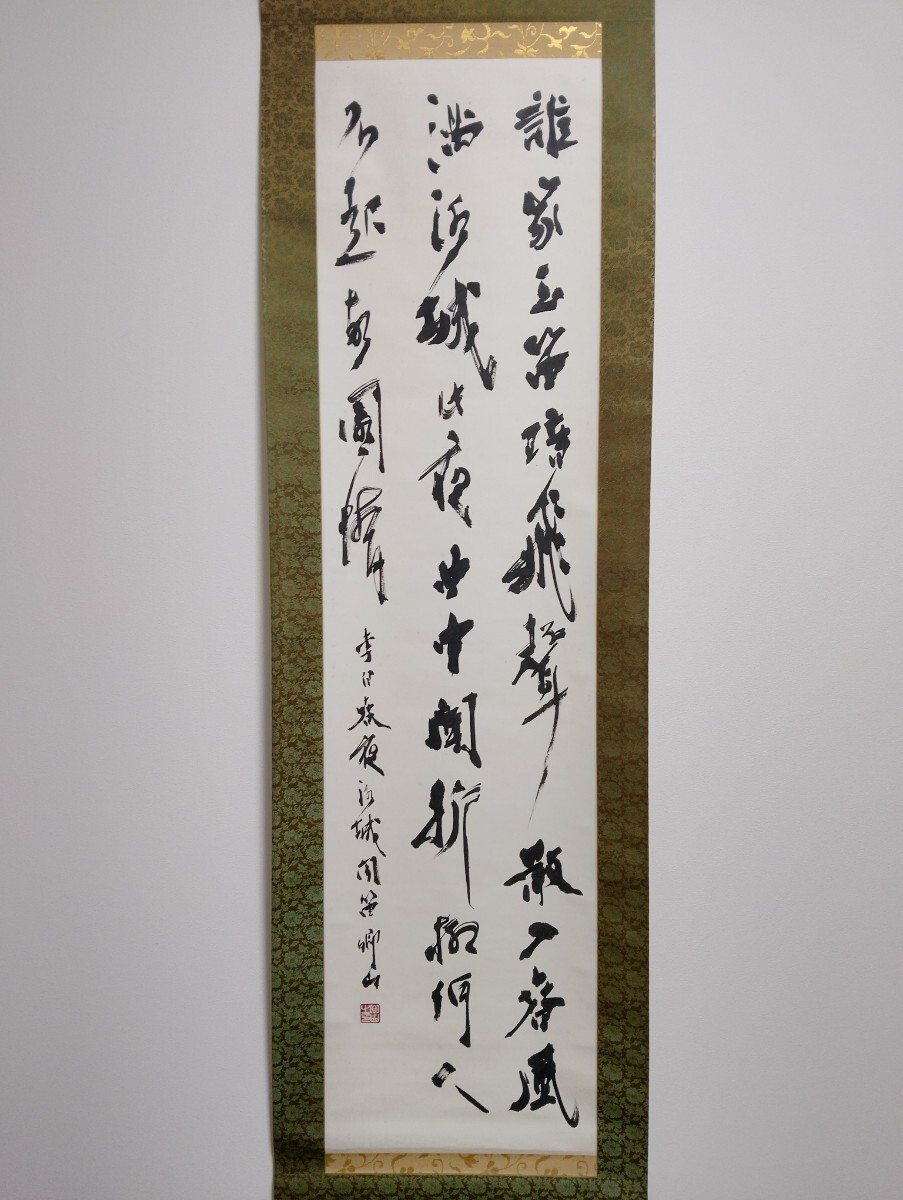 誰家玉笛暗飛聲散入春風
滿洛城此夜曲中聞折柳何人
不起故園情
李白春夜洛城聞笛卿山